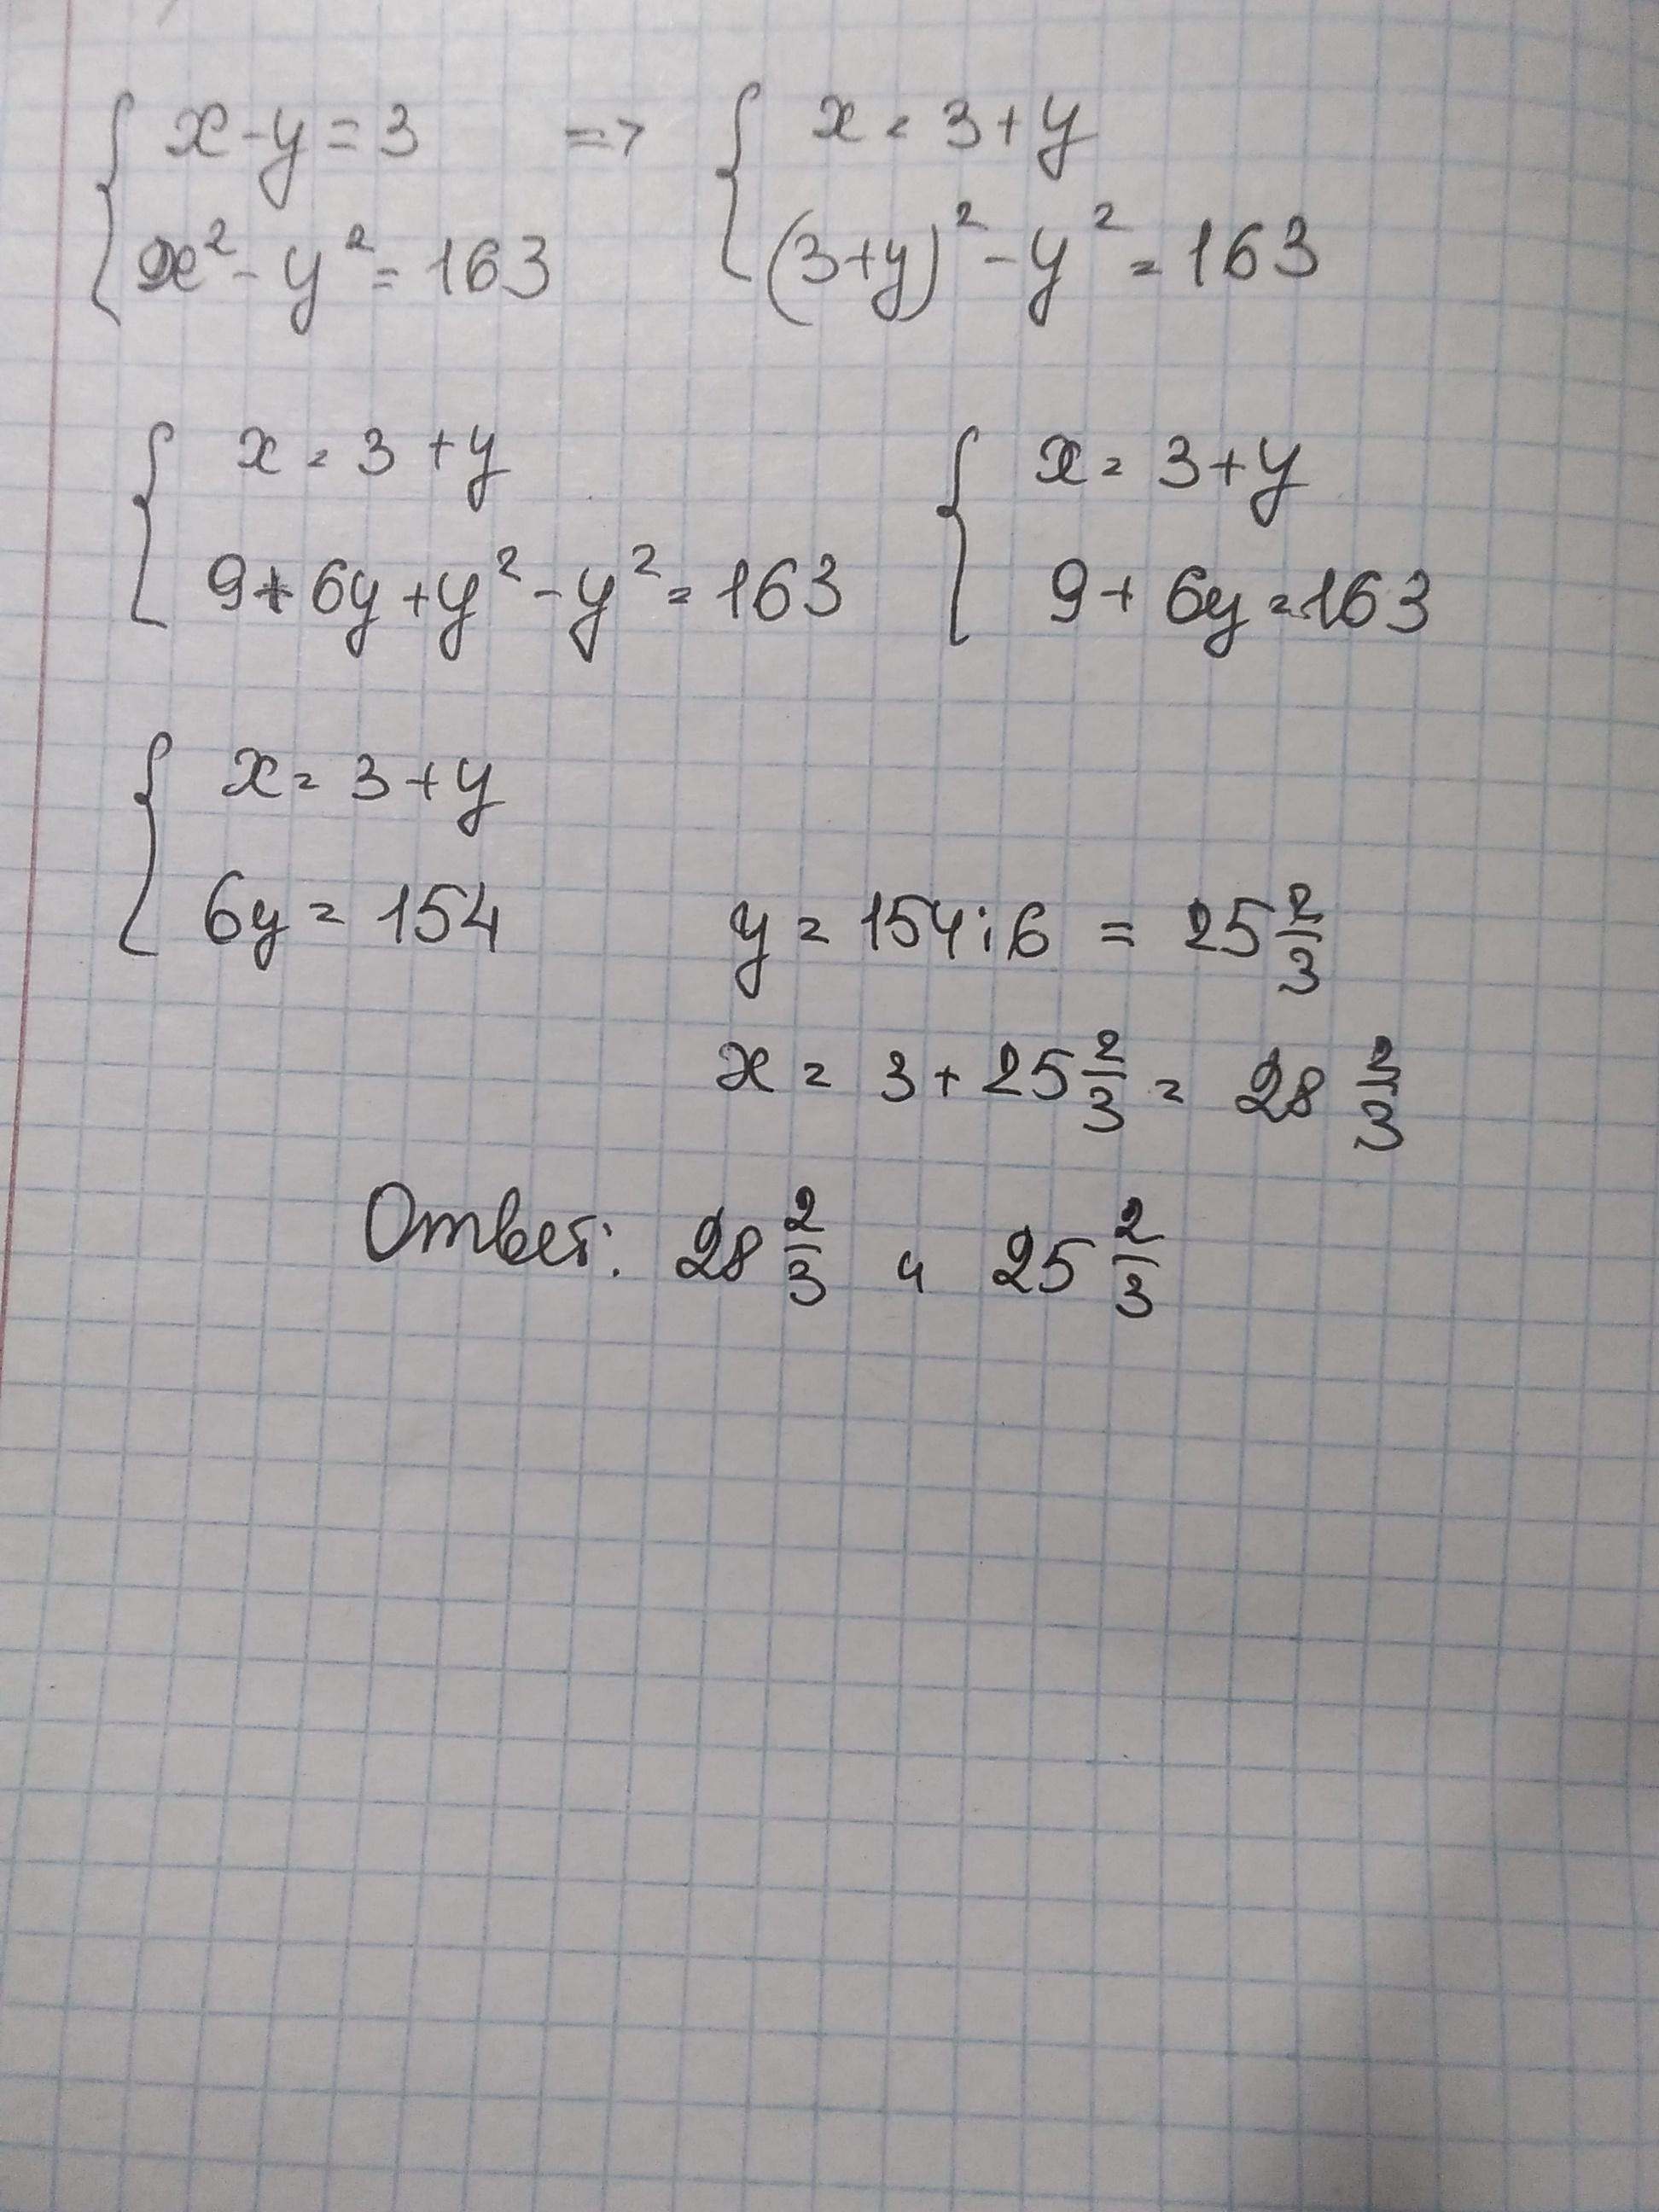 { x - y = 3 => { x = 3 + y
{ x² - y² = 163 { (3+y)² - y² = 163
{ x = 3 + y { x = 3 + y
{ 9 + 6y + y² - y² = 163 { 9 + 6y = 163
{ x = 3 + y
{ 6y = 154 y = 154 : 6 = 25 2/3
x = 3 + 25 2/3 = 28 2/3
Ответ: 28 2/3 и 25 2/3